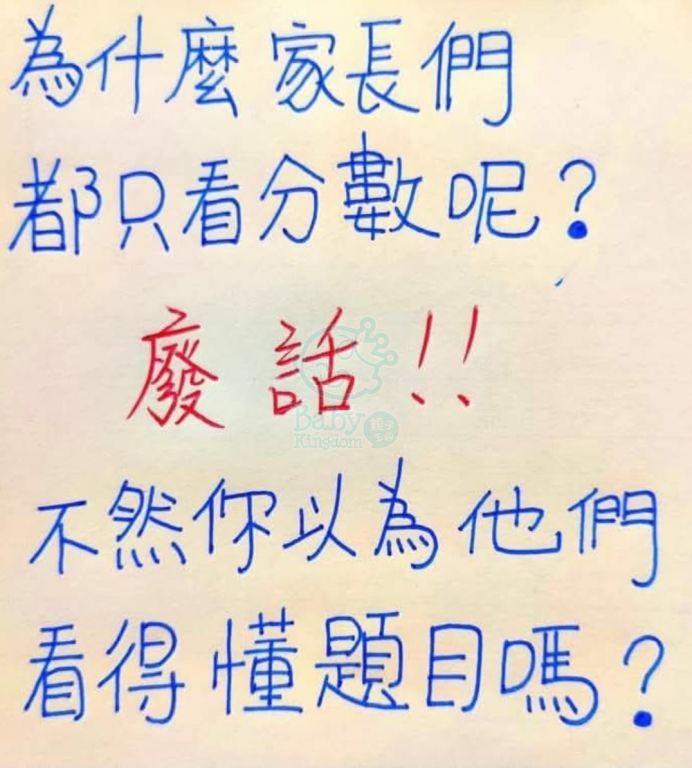 為什麼家長們
都只看分數呢？
廢話！！
Baby
Kingdom
親子
不然你以為他們
看得懂題目嗎？